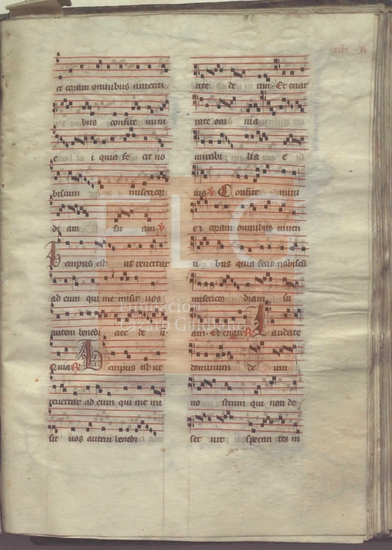 et coram omnibus viventi
bus confite mini
e i quia fe cit no
biscum misericor
diam su am
Tempus est ut revertar
ad eum qui me misit vos
autem bened icite de u
Tempus est ut
revertar ad eum qui me mi
sit vos autem benedi
cite de um Et enar
rate om nia
mirabi lia e
ius Confite mini
et coram omnibus viven
ti bus quia fecit nobiscum
misericor diam su
am Et enarr Laudate
dominum de um
no strum qui non de
ser uit sperantes in